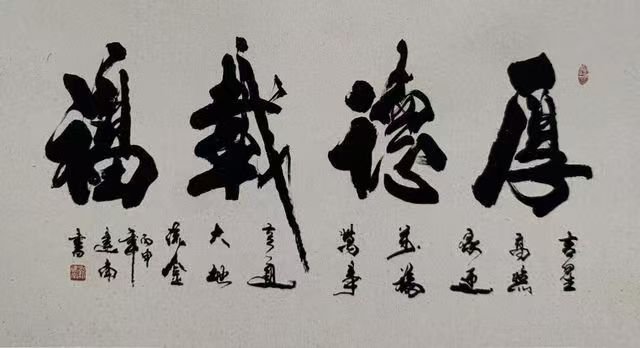 厚德載福
吉星
高照
家迎
福
萬事
亨通
大地
流金
丙申
年
建南
書